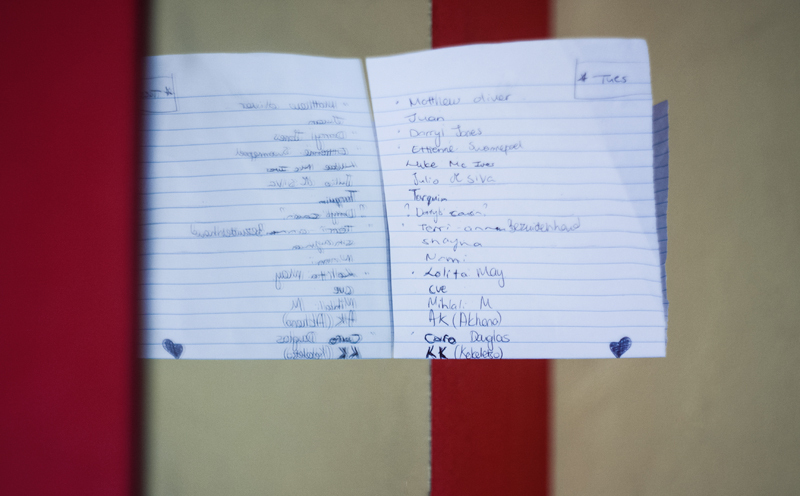 * Tues
· Matthew oliver
Juan
· Darryl Jones
· Ettienne Swanepoel
Luke Mc
Julio d silva
Tarquin
? Darryl ?
· Terri-ann Bezuidenhoud
Shayna
Nomi
· Lolita May
eve
Mihlali M
AK (Akhona)
· Caro Douglas
KK (Kekeletso)